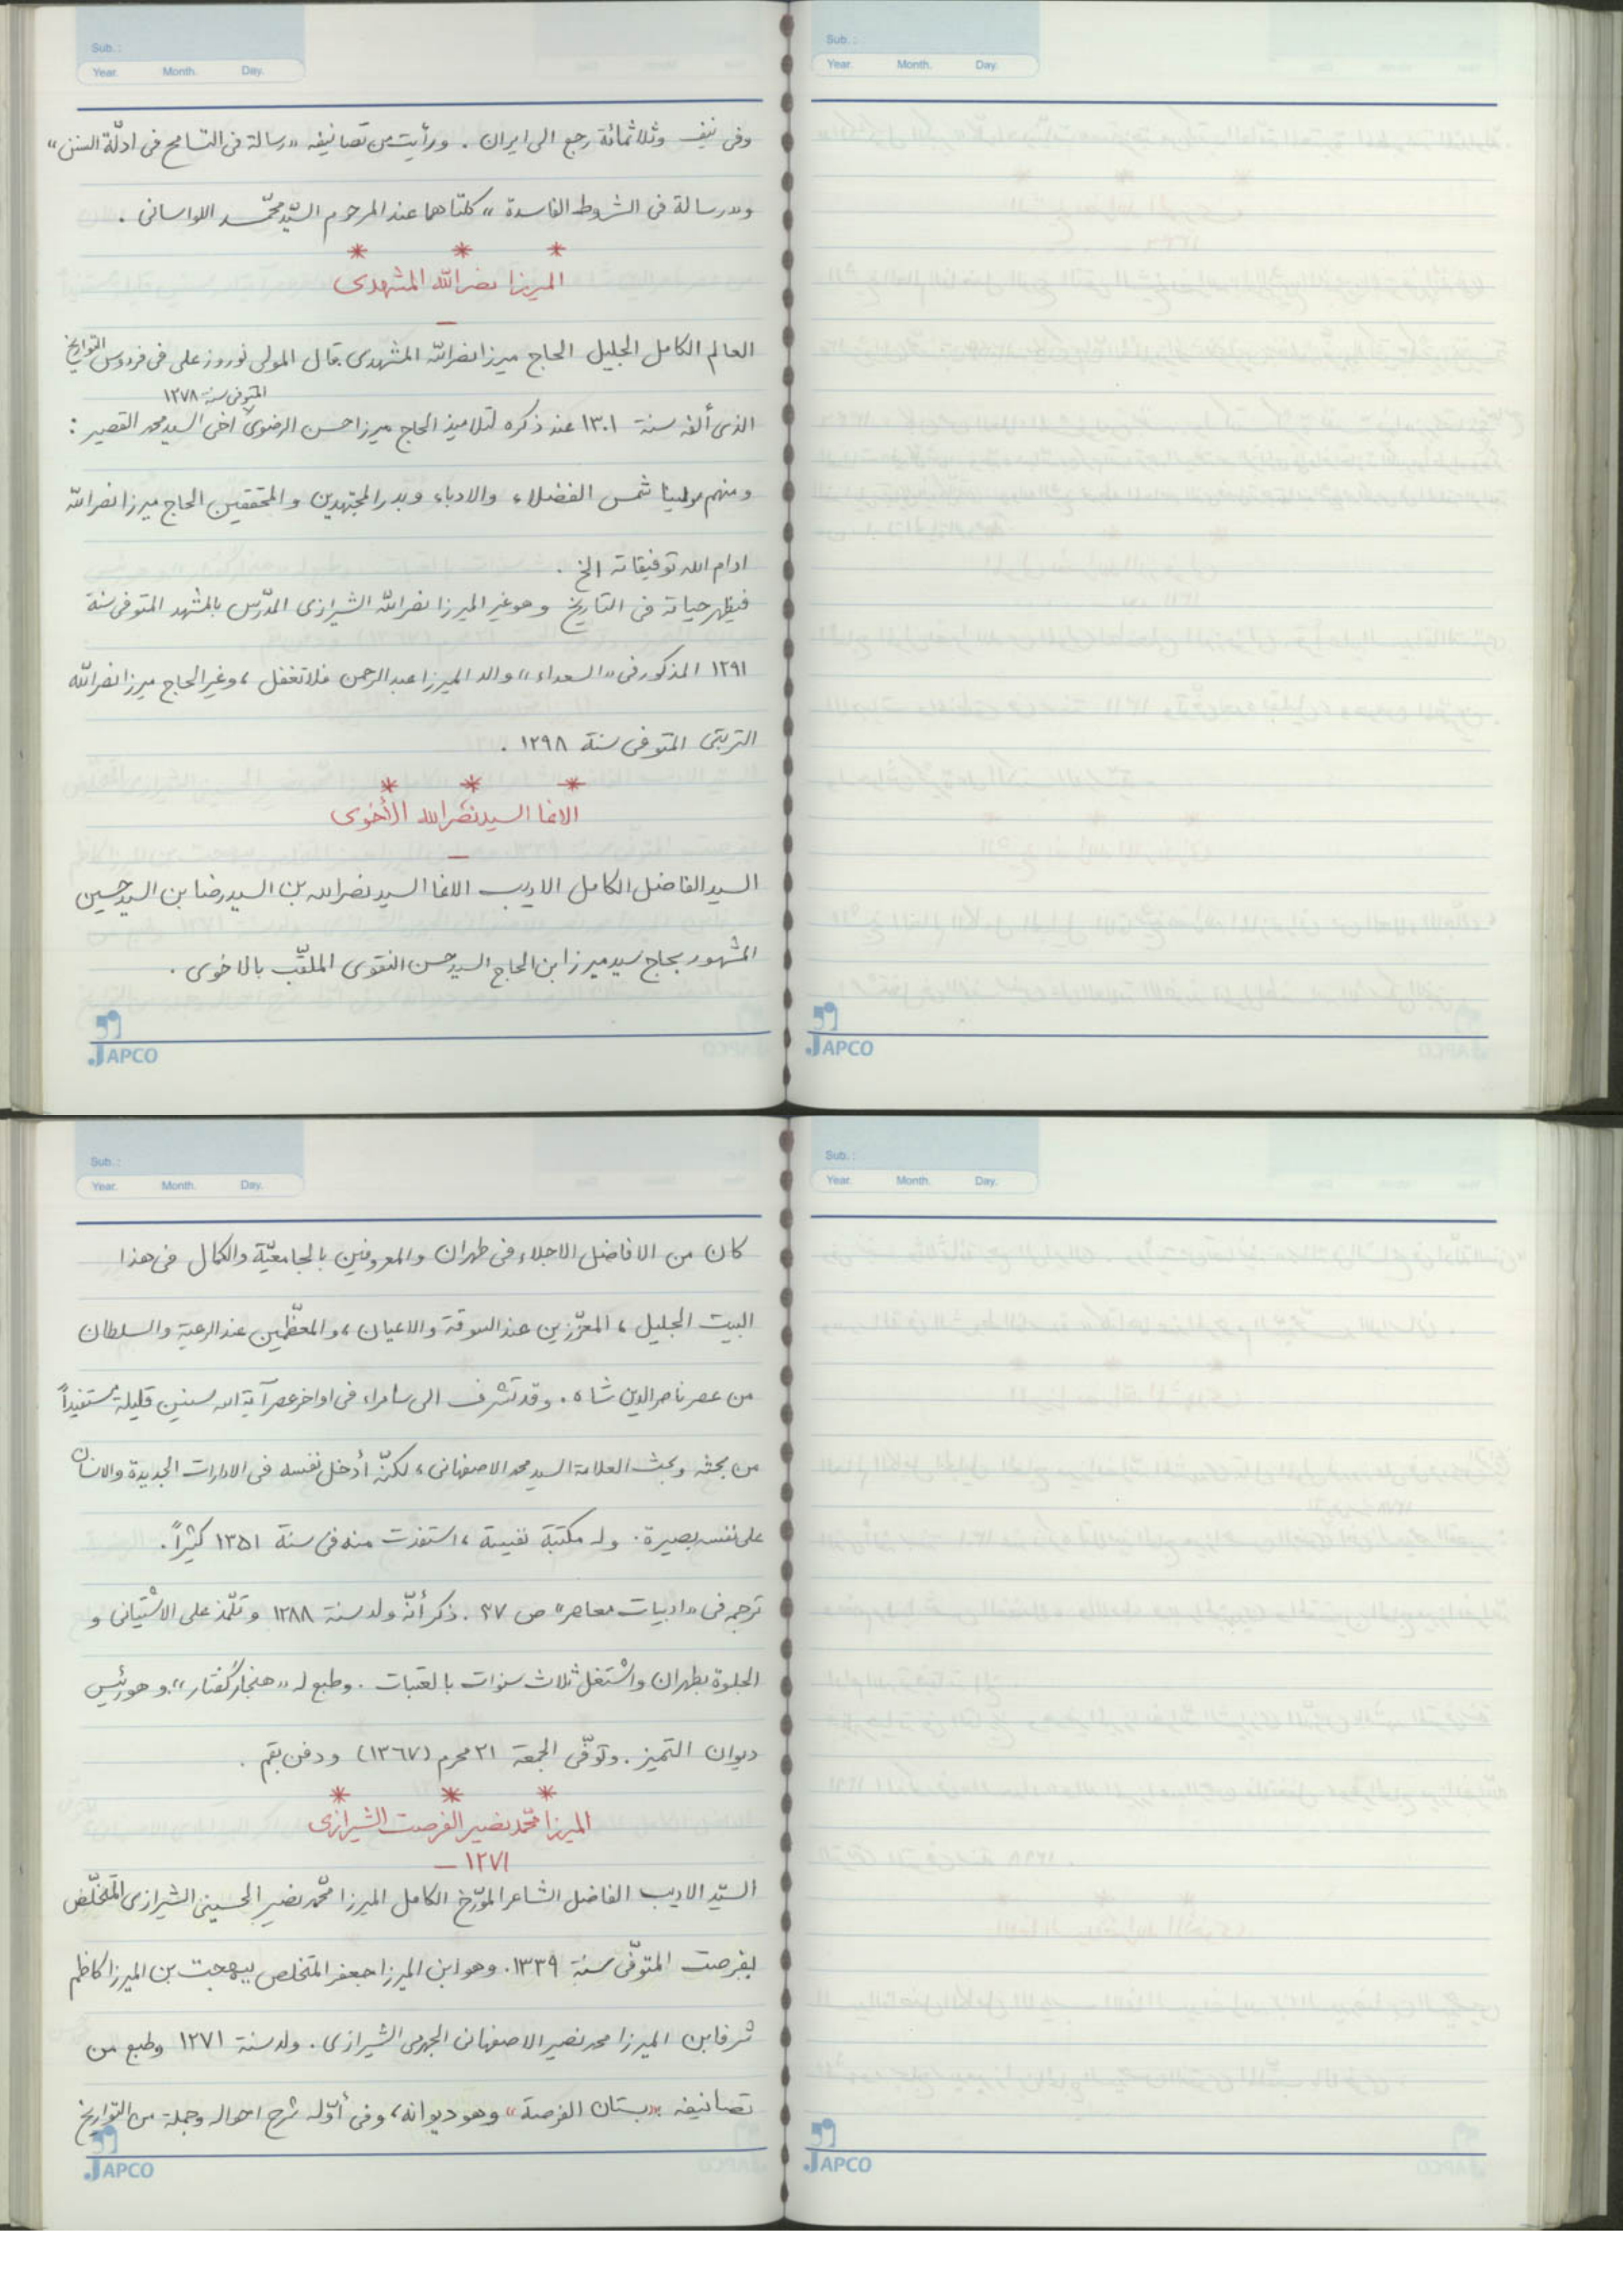 Sub. :
Year. Month. Day.
وفى نيف وثلاثمائة رجع الى ايران . ورأيت من تصانيفه «رسالة فى التسامح فى ادلّة السنن»
و«رسالة فى الشروط الفاسدة» كلتاهما عند المرحوم السيّد محمّد اللواسانى .
* * *
الميرزا نصرالله المشهدى
—
العالم الكامل الجليل الحاج ميرزا نصرالله المشهدى قال المولى نوروز على فى فردوس التواريخ
المتوفى سنة ١٢٧٨
الذى ألفه سنة ١٣٠١ عند ذكره لتلاميذ الحاج ميرزا حسن الرضوى اخى السيد محمد القصير :
ومنهم مولينا شمس الفضلاء والادباء وبدر المجتهدين والمحققين الحاج ميرزا نصرالله
ادام الله توفيقاته الخ .
فيظهر حياته فى التاريخ وهو غير الميرزا نصرالله الشيرازى المدّرس بالمشهد المتوفى سنة
١٢٩١ المذكور فى «السعداء» والد الميرزا عبدالرحمن فلا تغفل ، وغير الحاج ميرزا نصرالله
التربتى المتوفى سنة ١٢٩٨ .
* * *
الاغا السيد نصرالله الأخوى
—
السيد الفاضل الكامل الاديب الاغا السيد نصرالله بن السيد رضا بن السيد حسين
المشهور بحاج سيد ميرزا ابن الحاج السيد حسن التقوى الملقّب بالاخوى .
JAPCO
Sub. :
Year. Month. Day.
JAPCO
Sub. :
Year. Month. Day.
كان من الافاضل الاجلاء فى طهران والمعروفين بالجامعيّة والكمال فى هذا
البيت الجليل ، المعزّزين عند السوقة والاعيان ، والمعظّمين عند الرعية والسلطان
من عصر ناصرالدين شاه . وقد تشرف الى سامراء فى اواخر عصر آية الله سنين قليلة مستفيداً
من بحثه وبحث العلامة السيد محمد الاصفهانى ، لكنّه أدخل نفسه فى الادارات الجديدة والانسان
على نفسه بصيرة . وله مكتبة نفيسة ، استفذت منه فى سنة ١٣٥١ كثيراً .
ترجمه فى «ادبيات معاصر» ص ٢٧ . ذكر أنّه ولد سنة ١٢٨٨ وتلّمذ على الاشتيانى و
الجلوة بطهران واشتغل ثلاث سنوات بالعتبات . وطبع له «هنجار گفتار» . وهو رئيس
ديوان التميز . وتوفّى الجمعة ٢١ محرم (١٣٦٧) ودفن بقم .
* * *
الميرزا محمّد نصير الفرصت الشيرازى
١٢٧١ —
السيّد الاديب الفاضل الشاعر المؤرّخ الكامل الميرزا محمّد نصير الحسينى الشيرازى المتخلّص
بفرصت المتوفّى سنة ١٣٣٩ . وهو ابن الميرزا جعفر المتخلص ببهجت بن الميرزا كاظم
شرفا بن الميرزا محمد نصير الاصفهانى الجهرمى الشيرازى . ولد سنة ١٢٧١ وطبع من
تصانيفه «بستان الفرصة» وهو ديوانه ، وفى أوّله شرح احواله وجملة من التواريخ
JAPCO
Sub. :
Year. Month. Day.
JAPCO